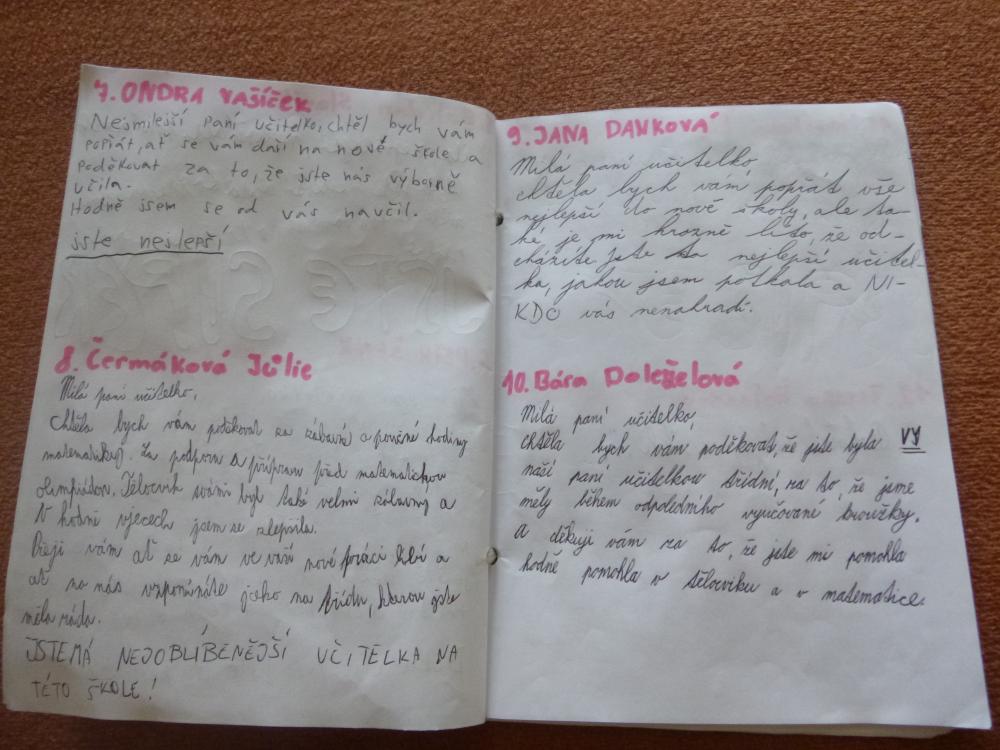 7. ONDRA VAŠÍČEK
Nejmilejší paní učitelko, chtěl bych vám
popřát, ať se vám daří na nové škole a
poděkovat za to, že jste nás výborně
učila.
Hodně jsem se od vás naučil.
jste nejlepší
8. Čermáková Júlie
Milá paní učitelko,
chtěla bych vám poděkovat za zábavné a poučné hodiny
matematiky. Za podporu a přípravu před matematickou
olympiádou. Tělocvik s vámi byl také velmi zábavný a
v hodně vjecech jsem se zlepšila.
Přeji vám ať se vám ve vaší nové práci líbí a
ať na nás vzpomínáte jako na třídu, kterou jste
měla ráda.
JSTE MÁ NEJOBLÍBENĚJŠÍ UČITELKA NA
TÉTO ŠKOLE!
9. JANA DANKOVÁ
Milá paní učitelko,
chtěla bych vám popřát vše
nejlepší do nové školy, ale ta-
ké je mi hrozně líto, že od-
cházíte jste ta nejlepší učitel-
ka, jakou jsem potkala a NI-
KDO vás nenahradí.
10. Bára Doleželová
Milá paní učitelko,
chtěla bych vám poděkovat, že jste byla VY
naší paní učitelkou třídní, za to, že jsme
měly během odpoledního vyučování kroužky.
A děkuji vám za to, že jste mi pomohla
hodně pomohla v tělocviku a v matematice.